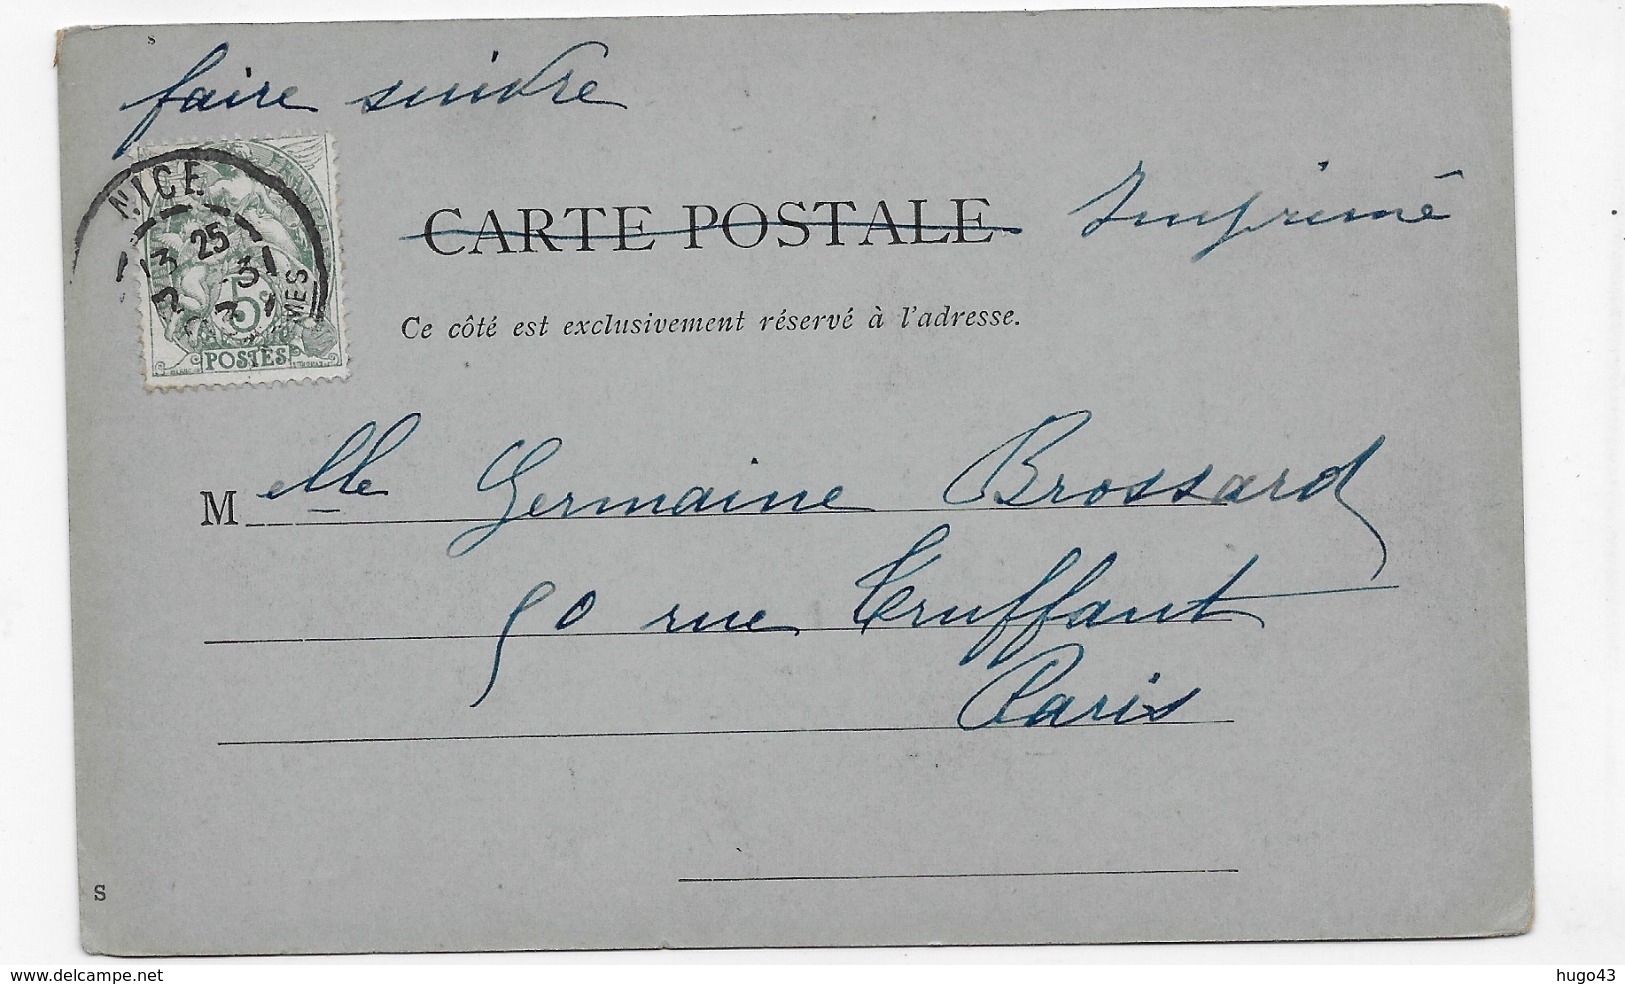 s
faire suivre
NICE
13 25
3
MES
FRANC
5c
POSTES
CARTE POSTALE Imprimé
Ce côté est exclusivement réservé à l'adresse.
Melle Germaine Brossard
50 rue Truffaut
Paris
S
www.delcampe.net
hugo43